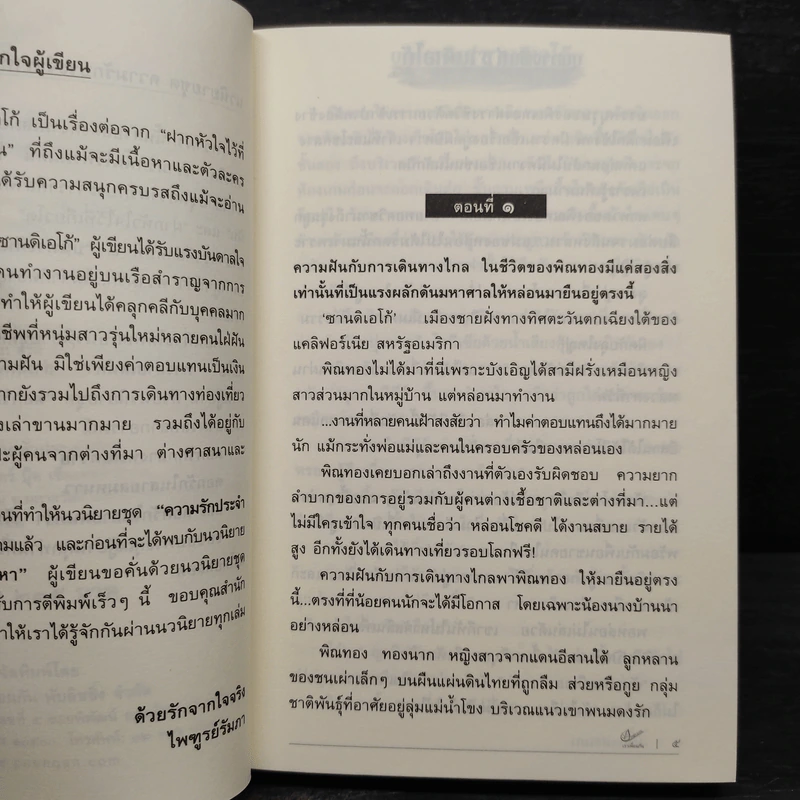 กใจผู้เขียน
อโก้ เป็นเรื่องต่อจาก “ฝากหัวใจไว้ที่
น” ที่ถึงแม้จะมีเนื้อหาและตัวละคร
ด้รับความสนุกครบรสถึงแม้จะอ่าน
ซานดิเอโก้” ผู้เขียนได้รับแรงบันดาลใจ
คนทำงานอยู่บนเรือสำราญจากการ
ทำให้ผู้เขียนได้คลุกคลีกับบุคคลมาก
ชีพที่หนุ่มสาวรุ่นใหม่หลายคนใฝ่ฝัน
ามฝัน มิใช่เพียงค่าตอบแทนเป็นเงิน
ากยังรวมไปถึงการเดินทางท่องเที่ยว
งเล่าขานมากมาย รวมถึงได้อยู่กับ
ปะผู้คนจากต่างที่มา ต่างศาสนาและ
นที่ทำให้นวนิยายชุด “ความรักประจำ
ามแล้ว และก่อนที่จะได้พบกับนวนิยาย
หา” ผู้เขียนขอคั่นด้วยนวนิยายชุด
รับการตีพิมพ์เร็วๆ นี้ ขอบคุณสำนัก
ำให้เราได้รู้จักกันผ่านนวนิยายทุกเล่ม
ด้วยรักจากใจจริง
ไพฑูรย์รัมภา
ตอนที่ ๑
ความฝันกับการเดินทางไกล ในชีวิตของพิณทองมีแค่สองสิ่ง
เท่านั้นที่เป็นแรงผลักดันมหาศาลให้หล่อนมายืนอยู่ตรงนี้
‘ซานดิเอโก้’ เมืองชายฝั่งทางทิศตะวันตกเฉียงใต้ของ
แคลิฟอร์เนีย สหรัฐอเมริกา
พิณทองไม่ได้มาที่นี่เพราะบังเอิญได้สามีฝรั่งเหมือนหญิง
สาวส่วนมากในหมู่บ้าน แต่หล่อนมาทำงาน
...งานที่หลายคนเฝ้าสงสัยว่า ทำไมค่าตอบแทนถึงได้มากมาย
นัก แม้กระทั่งพ่อแม่และคนในครอบครัวของหล่อนเอง
พิณทองเคยบอกเล่าถึงงานที่ตัวเองรับผิดชอบ ความยาก
ลำบากของการอยู่รวมกับผู้คนต่างเชื้อชาติและต่างที่มา...แต่
ไม่มีใครเข้าใจ ทุกคนเชื่อว่า หล่อนโชคดี ได้งานสบาย รายได้
สูง อีกทั้งยังได้เดินทางเที่ยวรอบโลกฟรี!
ความฝันกับการเดินทางไกลพาพิณทอง ให้มายืนอยู่ตรง
นี้...ตรงที่ที่น้อยคนนักจะได้มีโอกาส โดยเฉพาะน้องนางบ้านนา
อย่างหล่อน
พิณทอง ทองนาก หญิงสาวจากแดนอีสานใต้ ลูกหลาน
ของชนเผ่าเล็กๆ บนผืนแผ่นดินไทยที่ถูกลืม ส่วยหรือกูย กลุ่ม
ชาติพันธุ์ที่อาศัยอยู่ลุ่มแม่น้ำโขง บริเวณแนวเขาพนมดงรัก
| ๕